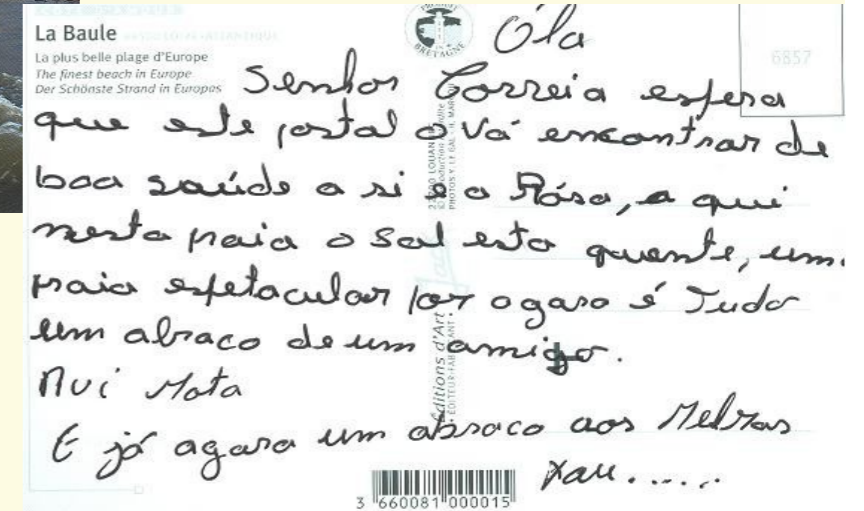 La Baule
La plus belle plage d'Europe
The finest beach in Europe
Der Schönste Strand in Europas
PRODUIT
EN
BRETAGNE
6857
Óla
Senhor Correia espera
que este postal o vá encontrar de
boa saúde a si e a Rósa, a qui
nesta praia o Sol esta quente, um.
praia espetacular por agara é Tudo
um abraco de um amigo.
Rui Mota
E já agara um abraco aos Melros
xau......
Éditions d'Art
ÉDITEUR-FABRICANT
Jack
3 660081 000015